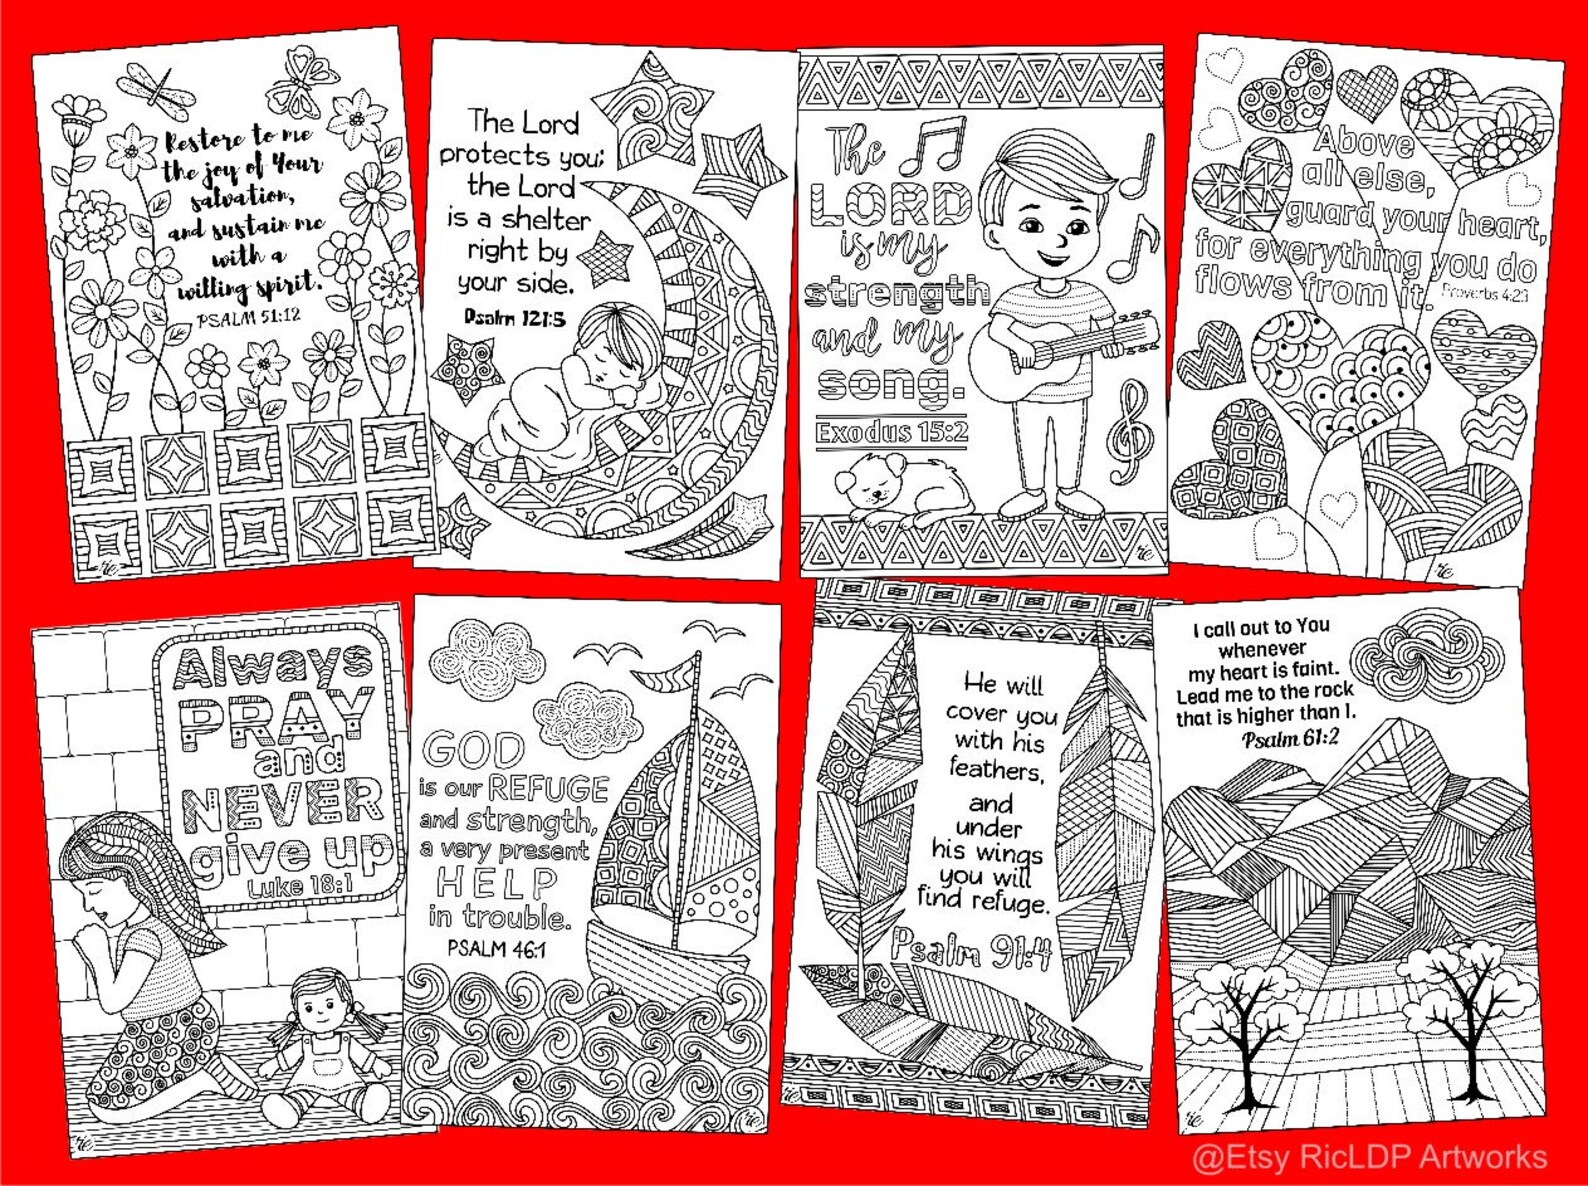 Restore to me
the joy of Your
salvation,
and sustain me
with a
willing spirit.
PSALM 51:12
The Lord
protects you;
the Lord
is a shelter
right by
your side.
Psalm 121:5
The
LORD
is my
strength
and my
song.
Exodus 15:2
Above
all else,
guard your heart,
for everything you do
flows from it.
Proverbs 4:23
Always
PRAY
and
NEVER
give up
Luke 18:1
GOD
is our REFUGE
and strength,
a very present
HELP
in trouble.
PSALM 46:1
He will
cover you
with his
feathers,
and
under
his wings
you will
find refuge.
Psalm 91:4
I call out to You
whenever
my heart is faint.
Lead me to the rock
that is higher than I.
Psalm 61:2
@Etsy RicLDP Artworks